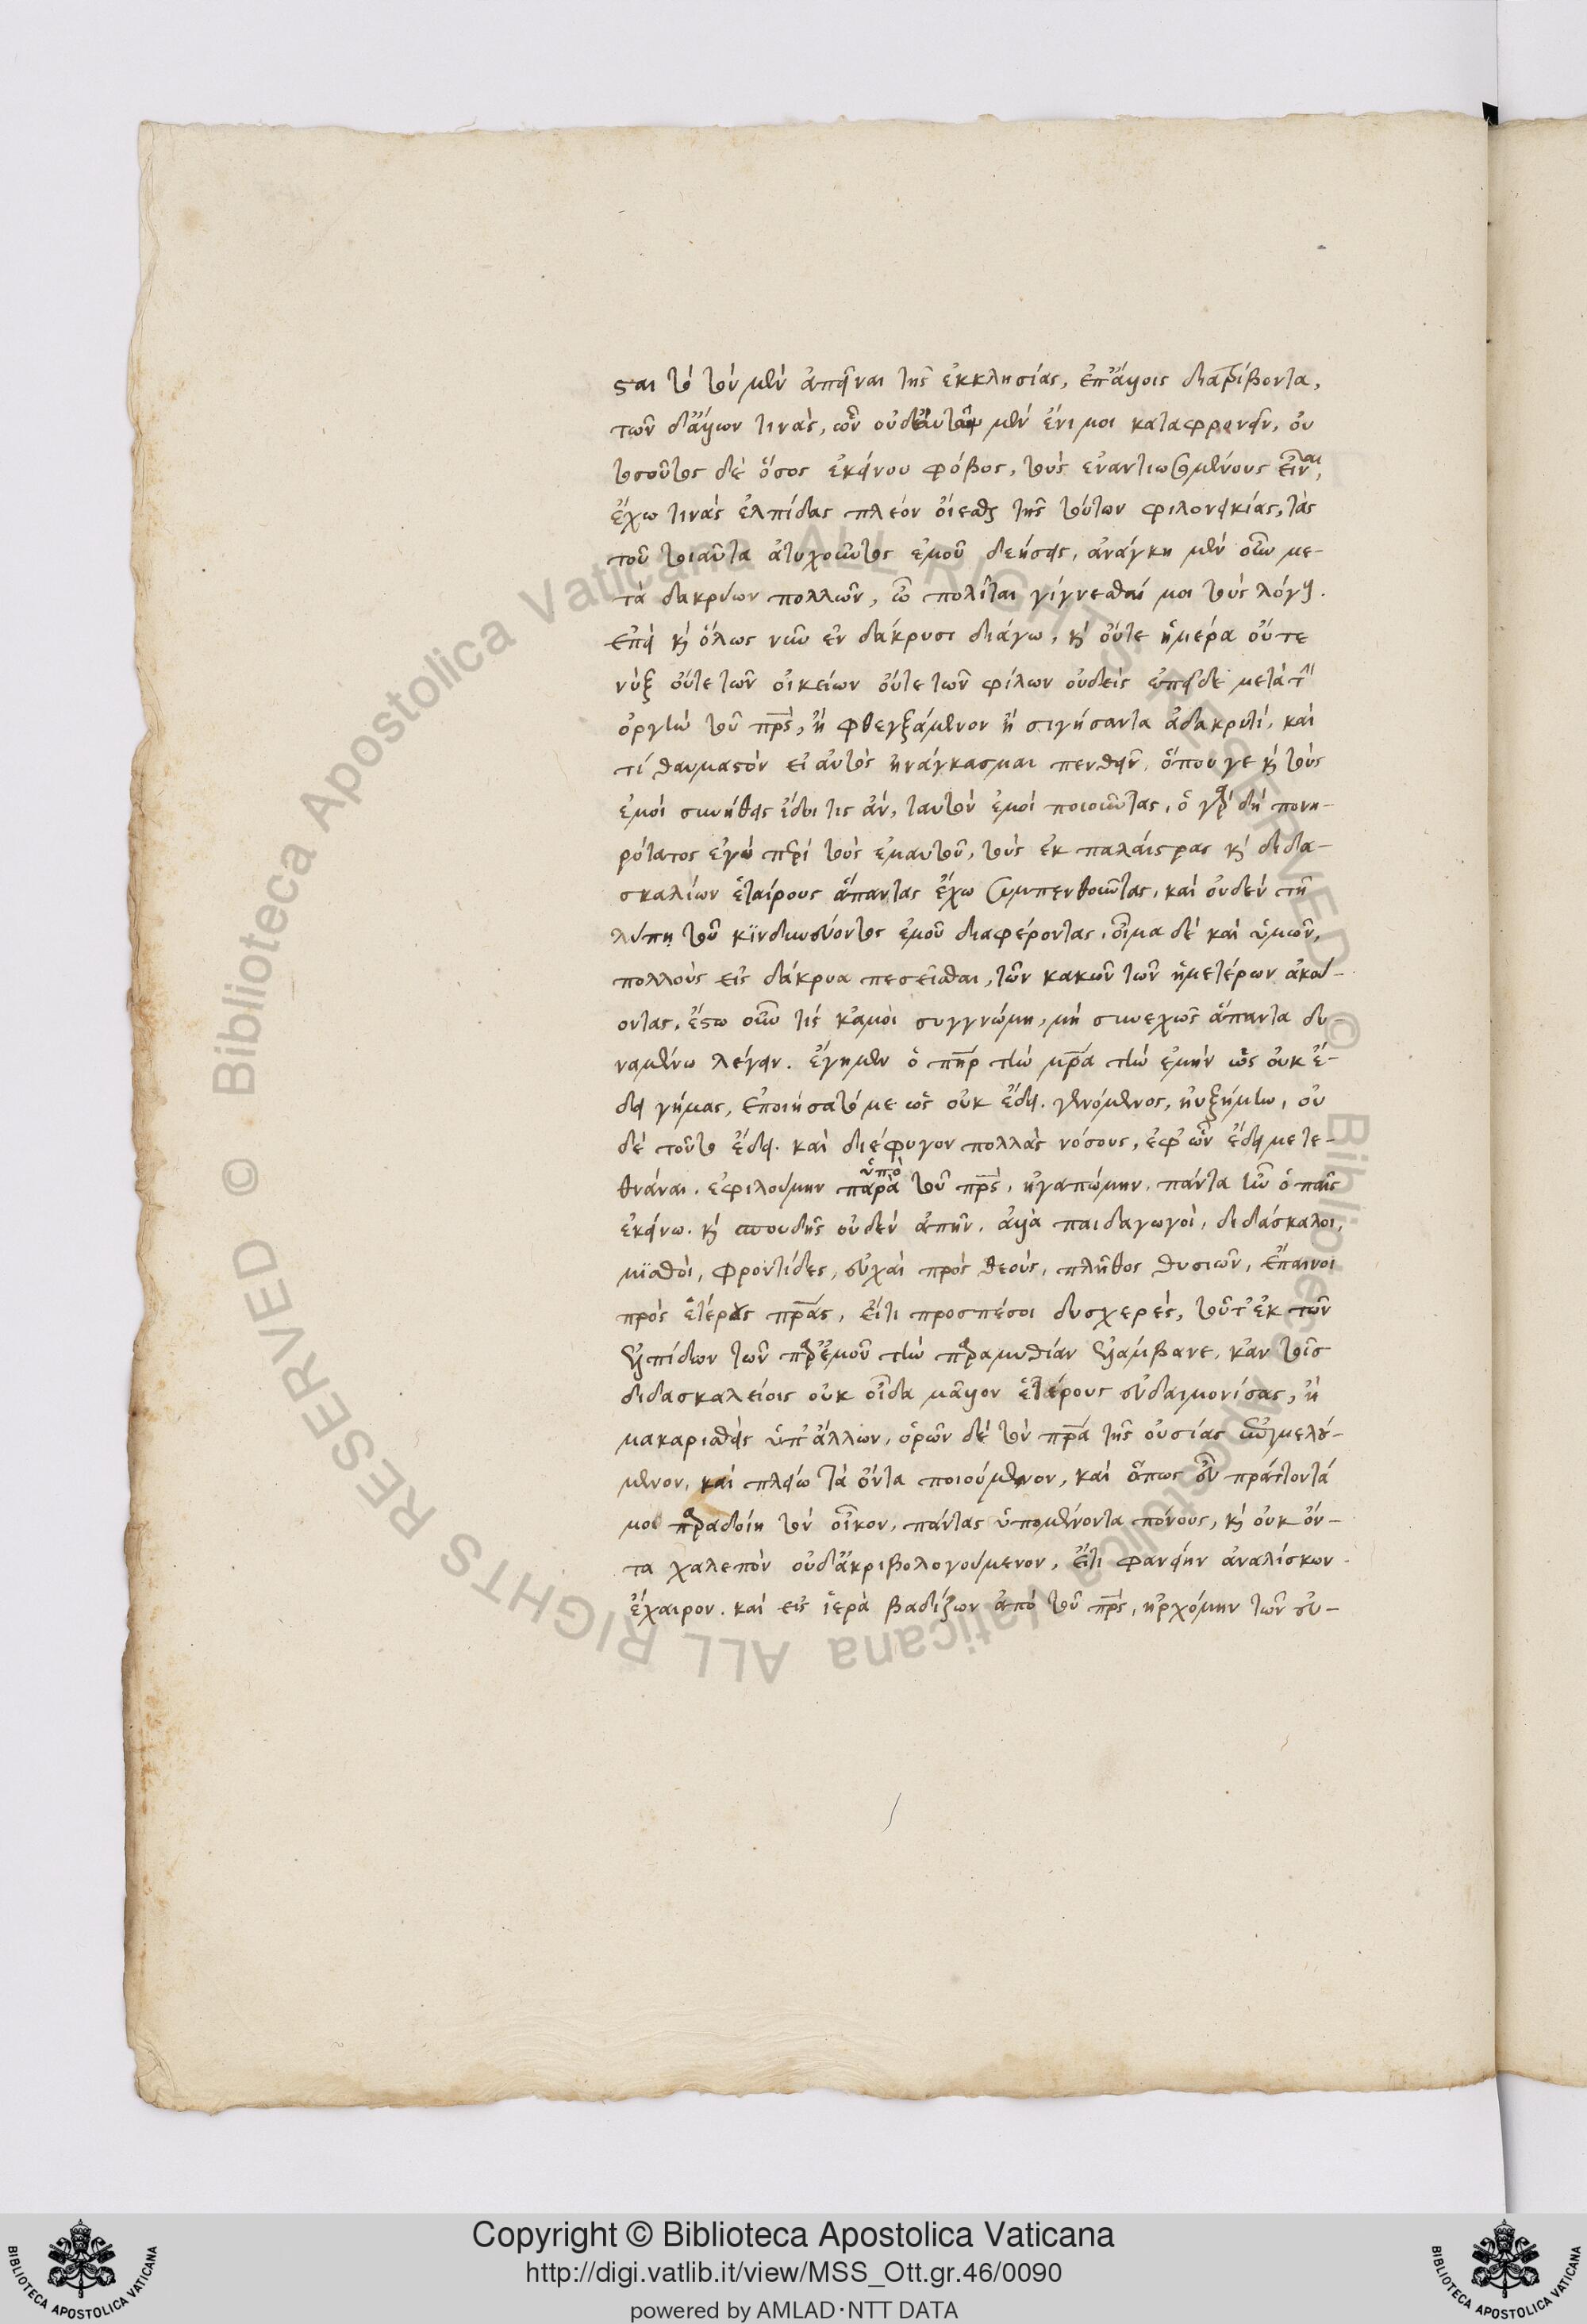 σαι τὸ τὸν μὲν ἀπεῖναι τῆς ἐκκλησίας, ἐπ' ἄλλοις διατρίβοντα,
τῶν δ' ἄλλων τινὰς, ὧν οὐδὲ αὐτῶν μὲν ἔνι μοι καταφρονεῖν, οὐ
τοσοῦτος δὲ ὅσος ἐκείνου φόβος, τοὺς ἐναντιωσομένους εἶναι,
ἔχω τινὰς ἐλπίδας πλέον οἴεσθε τῆς τούτων φιλονεικίας, τὰς
τοῦ τοιαῦτα ἀτυχοῦντος ἐμοῦ δεήσεις, ἀνάγκη μὲν οὖν με-
τὰ δακρύων πολλῶν, ὦ πολῖται γίγνεσθαί μοι τοὺς λόγους.
ἐπεὶ καὶ ὅλως νῦν ἐν δάκρυσι διάγω, καὶ οὔτε ἡμέρα οὔτε
νὺξ οὔτε τῶν οἰκείων οὔτε τῶν φίλων οὐδεὶς ἐπεῖδε μετὰ τὴν
ὀργὴν τοῦ πρς, ἢ φθεγξάμενον ἢ σιγήσαντα ἀδακρυτί, καὶ
τί θαυμαστὸν εἰ αὐτὸς ἠνάγκασμαι πενθεῖν, ὅπου γε καὶ τοὺς
ἐμοὶ συνήθεις ἴδοι τις ἂν, ταυτὸν ἐμοὶ ποιοῦντας, ὁ γὰρ δὴ πονη-
ρότατος ἐγὼ περὶ τοὺς ἐμαυτοῦ, τοὺς ἐκ παλαίστρας καὶ διδα-
σκαλίων ἑταίρους ἅπαντας ἔχω συμπενθοῦντας, καὶ οὐδὲν τῇ
λύπῃ τοῦ κινδυνεύοντος ἐμοῦ διαφέροντας, οἶμα δὲ καὶ ὑμῶν,
πολλοὺς εἰς δάκρυα πεσεῖσθαι, τῶν κακῶν τῶν ἡμετέρων ἀκού-
οντας, ἔστω οὖν τίς κἀμοὶ συγγνώμη, μὴ συνεχῶς ἅπαντα δυ-
ναμένω λέγειν. ἔγημεν ὁ πηρ τὴν μρα τὴν ἐμὴν ὡς οὐκ ἔ-
δει γήμας, ἐποιήσατό με ὡς οὐκ ἔδει. γενόμενος, ηὐξήμην, οὐ
δὲ τοῦτο ἔδει. καὶ διέφυγον πολλὰς νόσους, ἐφ' ὧν ἔδει με τε-
θνάναι. ἐφιλούμην παρὰ ὑπὸ τοῦ πρς, ἠγαπώμην, πάντα ἦν ὁ παῖς
ἐκείνω. καὶ σπουδῆς οὐδὲν ἀπῆν. ἀλλὰ παιδαγωγοὶ, διδάσκαλοι,
μισθοὶ, φροντίδες, εὐχαὶ πρὸς θεοὺς, πλῆθος θυσιῶν, ἔπαινοι
πρὸς ἑτέρους πρας, εἴ τι προσπέσοι δυσχερὲς, τοῦτ' ἐκ τῶν
ἐλπίδων τῶν παρ' ἐμοῦ τὴν παραμυθίαν ἐλάμβανε, κἀν τοῖς
διδασκαλείοις οὐκ οἶδα μᾶλλον ἑτέρους εὐδαιμονίσας, ἢ
μακαρισθεὶς ὑπ' ἄλλων, ὁρῶν δὲ τὸν πρα τῆς οὐσίας ἐπιμελού-
μενον, καὶ πλείω τὰ ὄντα ποιούμενον, καὶ ὅπως εὖ πράττοντά
μοι παραδοίη τὸν οἶκον, πάντας ὑπομένοντα πόνους, καὶ οὐκ ὄν-
τα χαλεπὸν οὐδ' ἀκριβολογούμενον, εἴ τι φανείην ἀναλίσκων
ἔχαιρον. καὶ εἰς ἱερὰ βαδίζων ἀπὸ τοῦ πρς, ἠρχόμην τῶν εὐ-
Copyright © Biblioteca Apostolica Vaticana
http://digi.vatlib.it/view/MSS_Ott.gr.46/0090
powered by AMLAD·NTT DATA